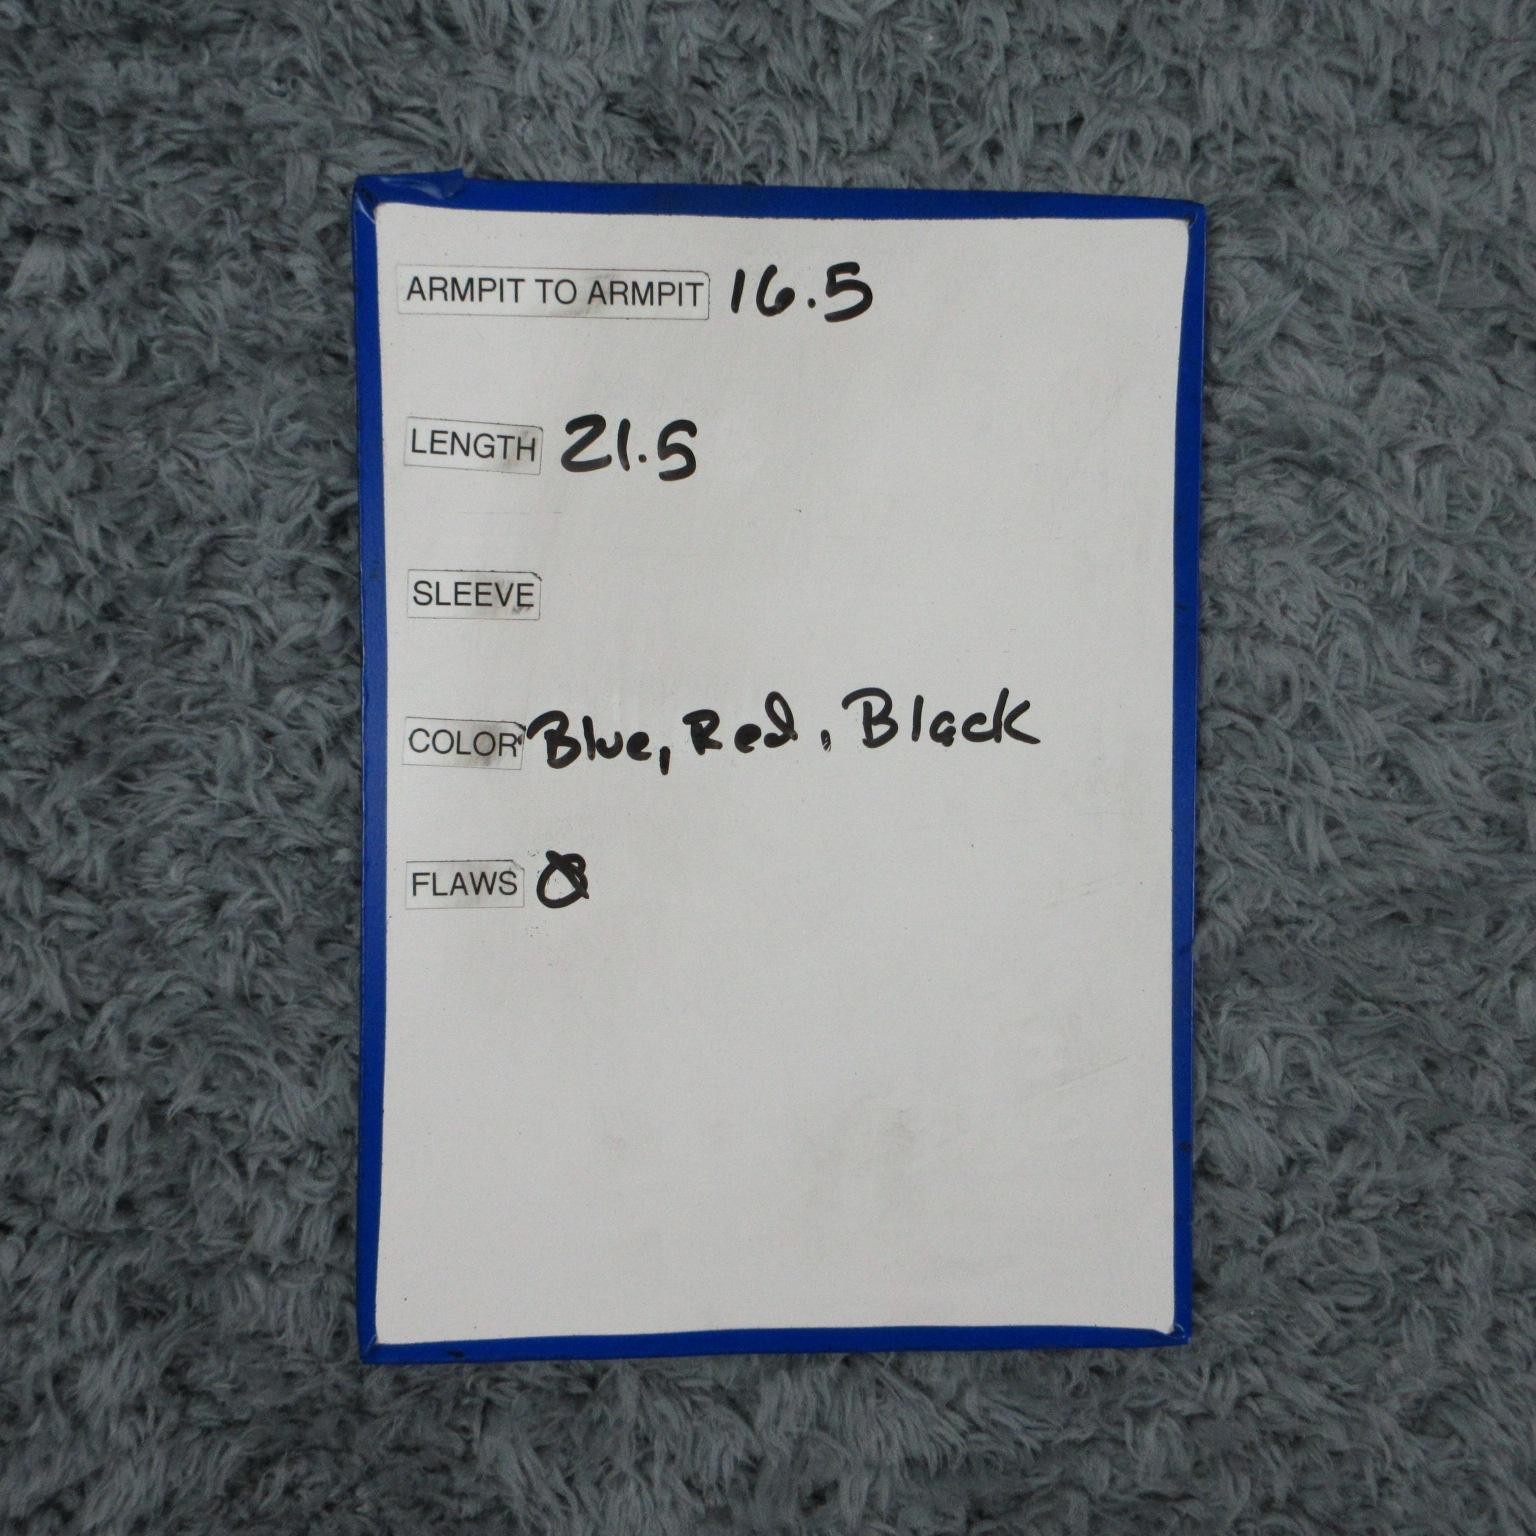 ARMPIT TO ARMPIT 16.5
LENGTH 21.5
SLEEVE
COLOR Blue, Red, Black
FLAWS Ø